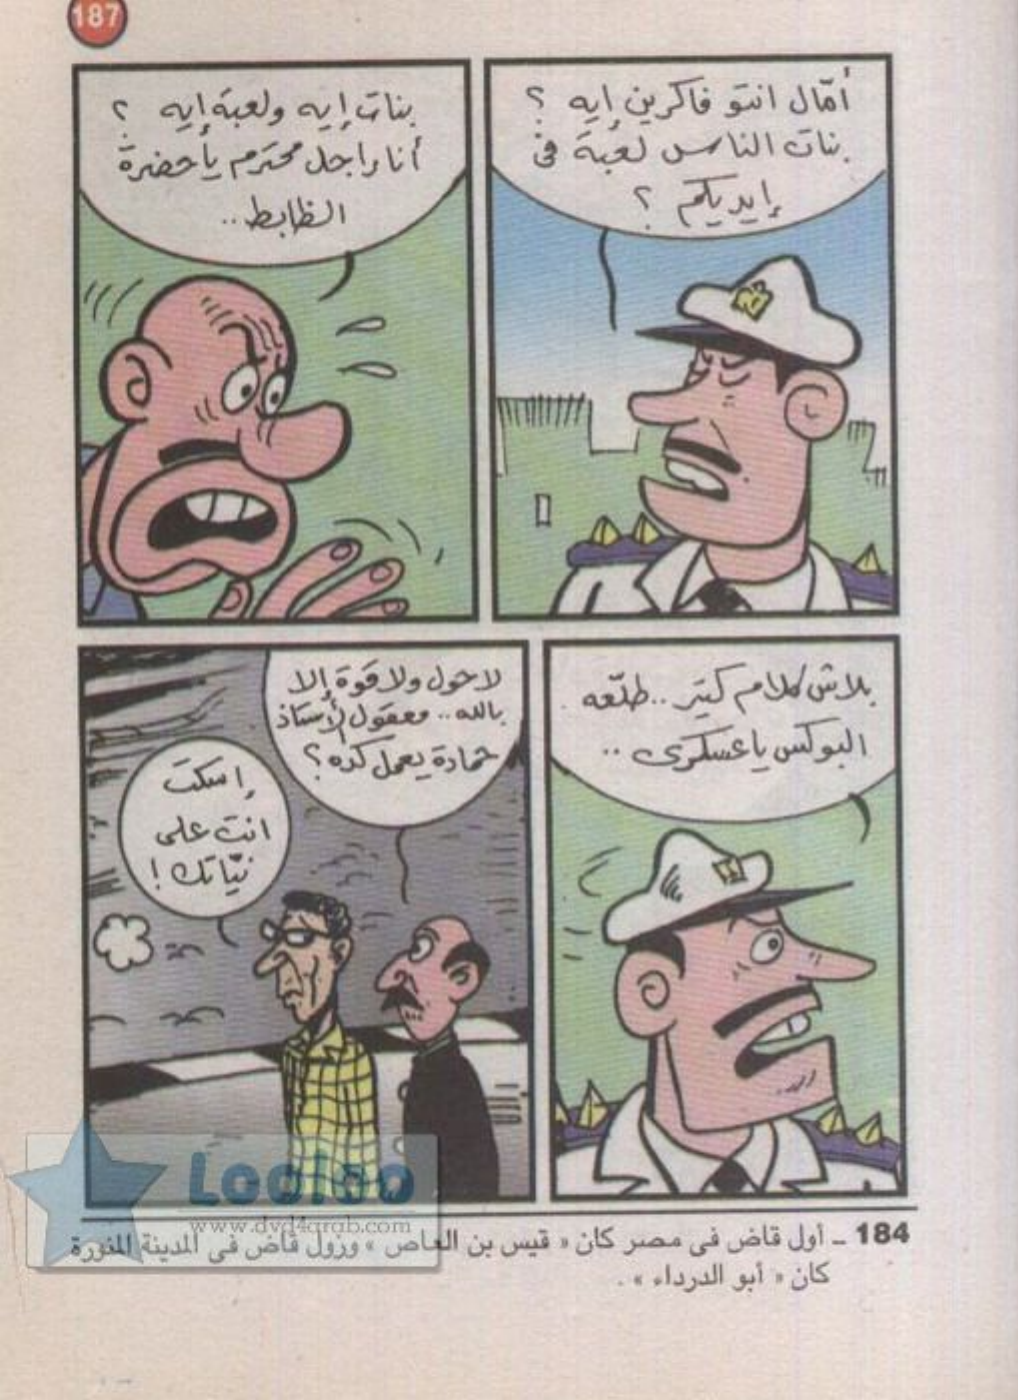 187
أمّال انتو فاكرين إيه ؟
بنات الناس لعبة فى
إيديكم ؟
بنات إيه ولعبة إيه ؟
أنا راجل محترم يا حضرة
الظابط..
بلاش كلام كتير .. طلّعه
البوكس يا عسكرى ..
لا حول ولا قوة إلا
بالله .. معقول الأستاذ
حمادة يعمل كده ؟
إسكت
انت على
نيّاتك !
184 ـ أول قاض فى مصر كان « قيس بن العاص » وزول قاض فى المدينة المنورة
كان « أبو الدرداء » .
Looloo
www.dvd4arab.com